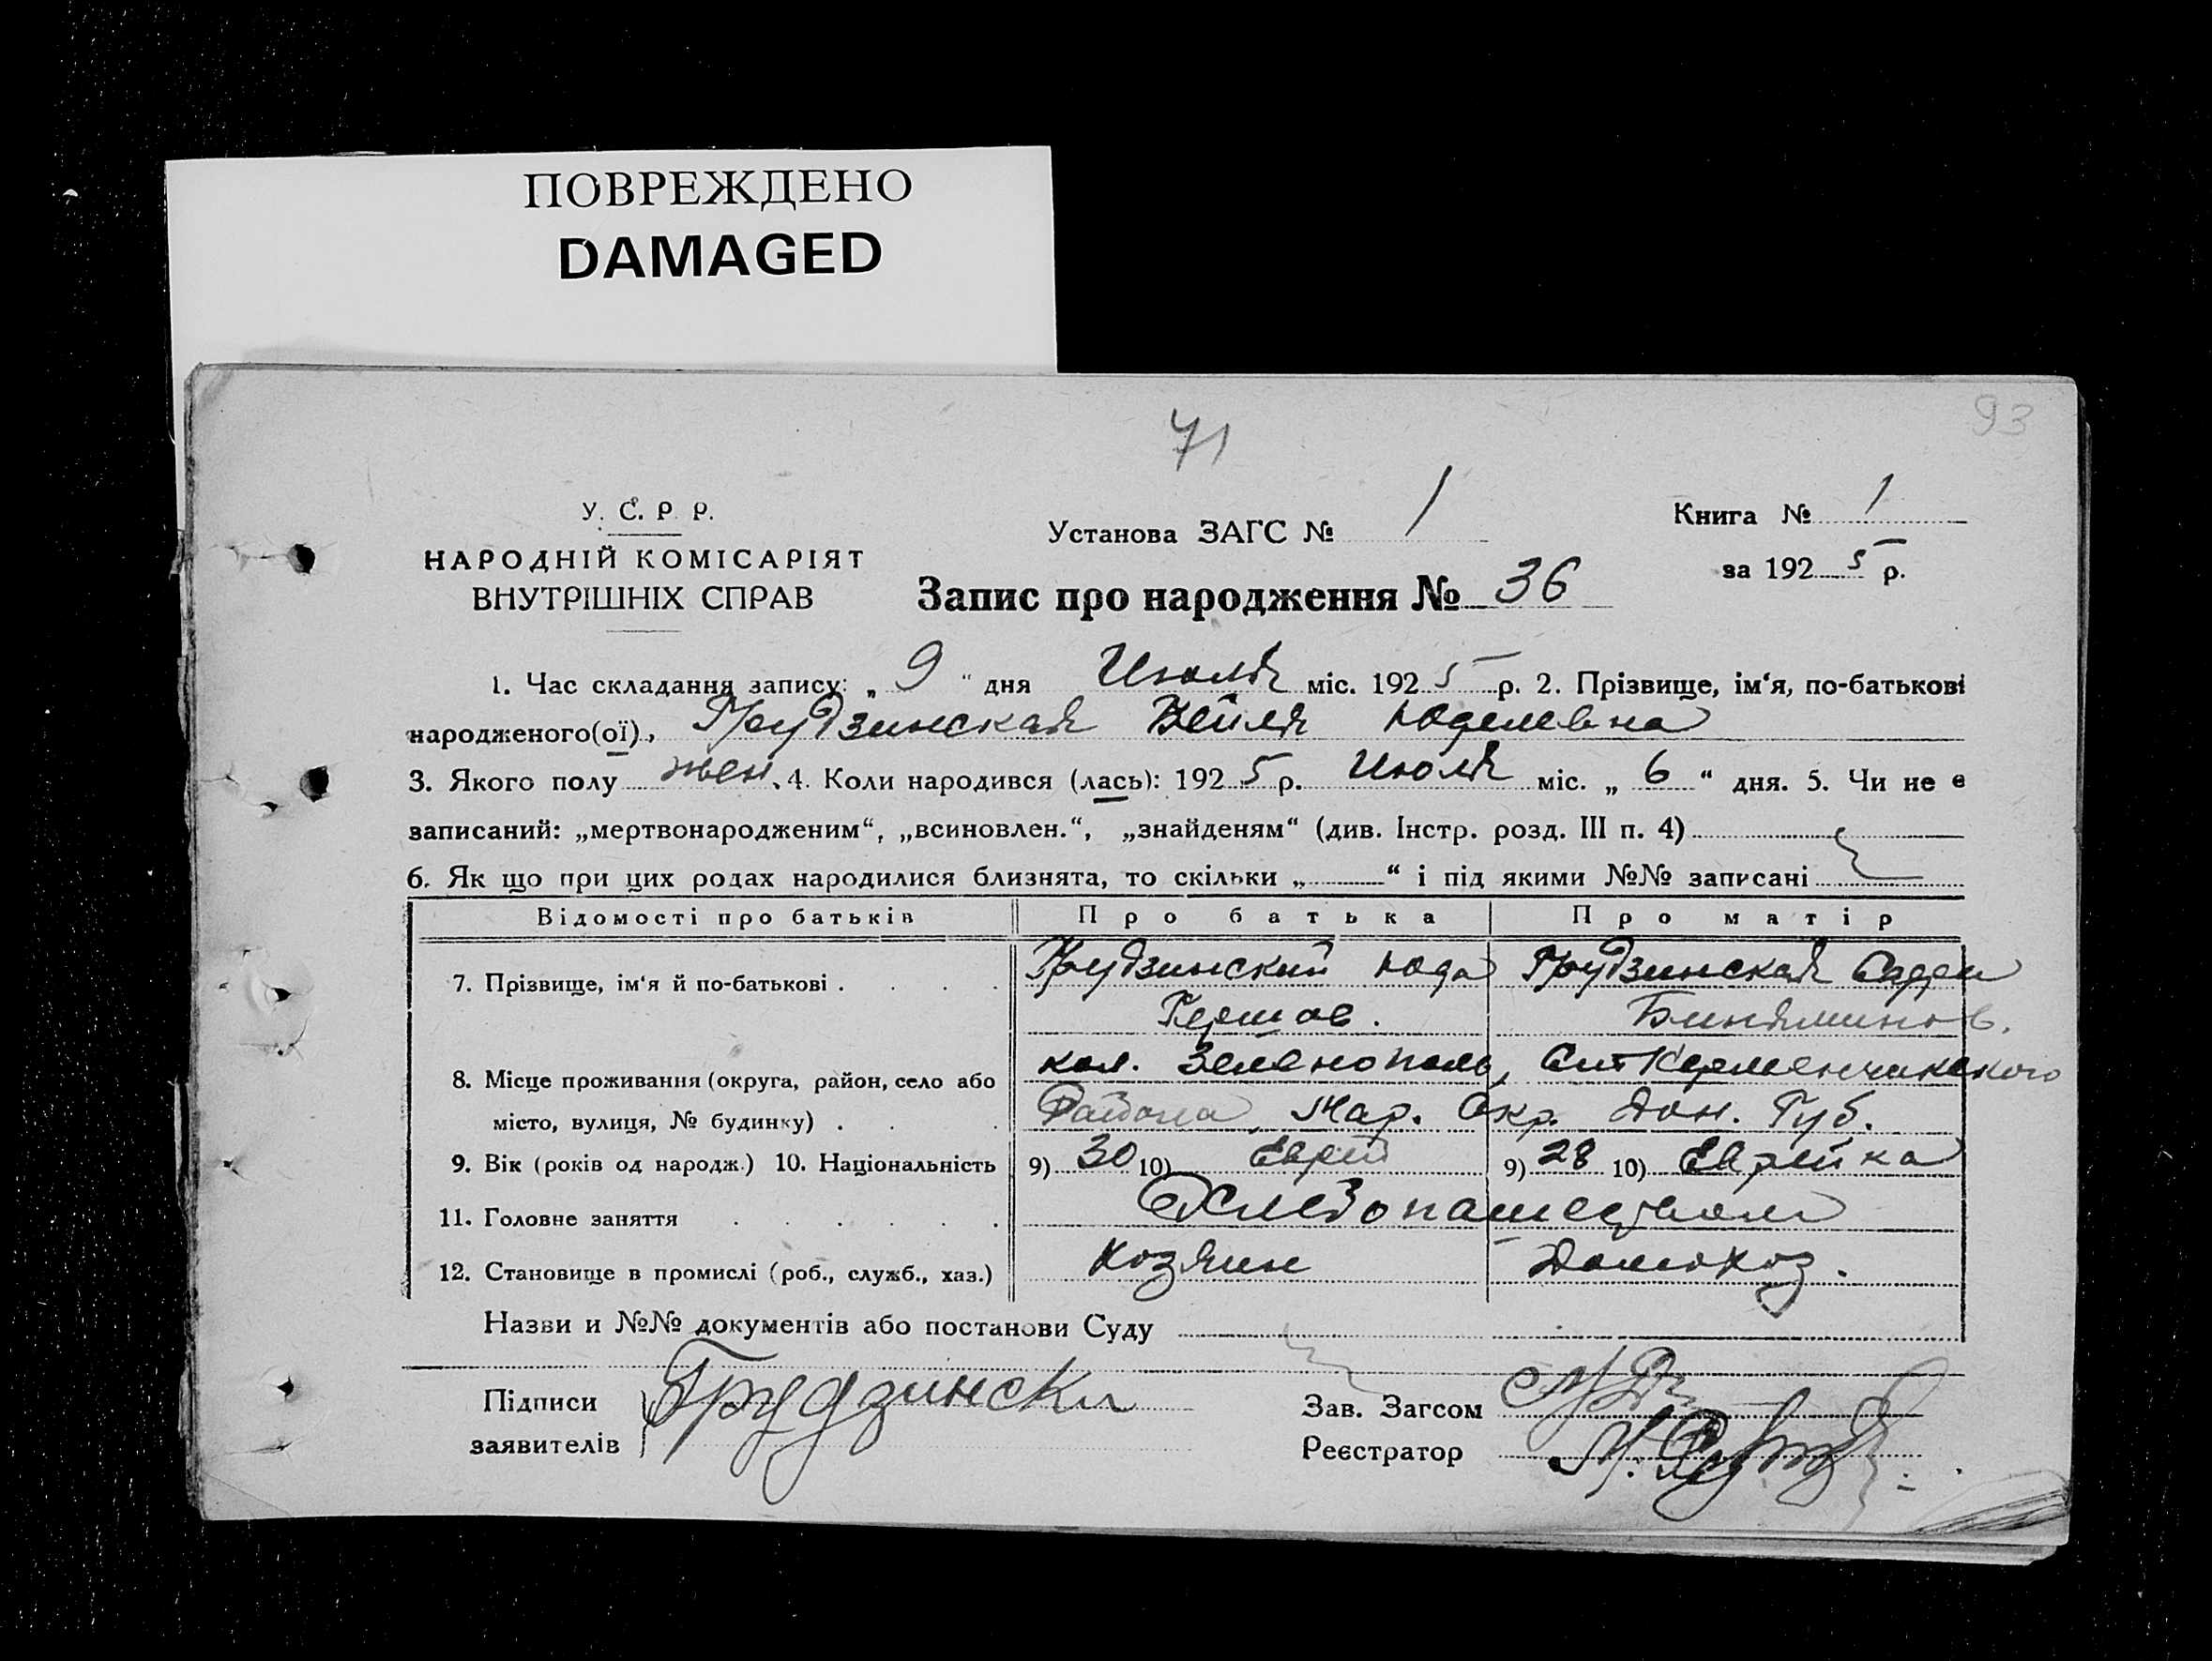 ПОВРЕЖДЕНО
DAMAGED
71
93
У. С. Р. Р.
НАРОДНІЙ КОМІСАРІЯТ
ВНУТРІШНІХ СПРАВ
Установа ЗАГС № 1
Книга № 1
за 1925 р.
Запис про народження № 36
1. Час складання запису: „ 9 " дня Июля міс. 1925 р. 2. Прізвище, ім'я, по-батькові
народженого(ої), Грудзинская Бейля Юделевна
3. Якого полу жен. 4. Коли народився (лась): 1925 р. Июля міс. „ 6 " дня. 5. Чи не є
записаний: „мертвонародженим", „всиновлен.", „знайденям" (див. Інстр. розд. III п. 4)
6. Як що при цих родах народилися близнята, то скільки „ " і під якими №№ записані
Відомості про батьків Про батька Про матір
7. Прізвище, ім'я й по-батькові . . . . Грудзинский Юда Грудзинская
Гершов. Биняминов.
8. Місце проживання (округа, район, село або кол. Зеленополь, Ст Керменчикского
місто, вулиця, № будинку) . . . Района, Мар. Окр. Дон. Губ.
9. Вік (років од народж.) 10. Національність 9) 30 10) Еврей 9) 28 10) Еврейка
11. Головне заняття . . . . . . Хлебопашеством
12. Становище в промислі (роб., служб., хаз.) Хозяин Домохоз.
Назви и №№ документів або постанови Суду
Підписи Грудзински Зав. Загсом
заявителів Реєстратор